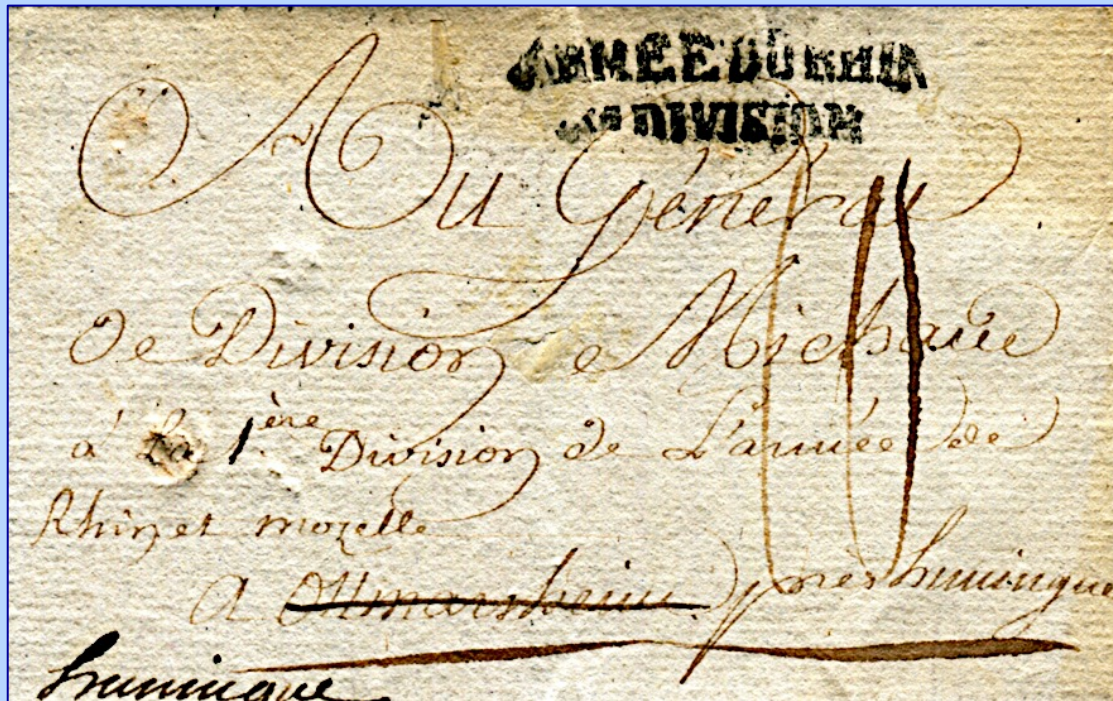 ARMÉE DU RHIN
DIVISION
Au Géneral
de Division e Michaud
à La 1.ère Division de L'armée de
Rhin et mozelle
a Ottmarsheim près huningue
huningue